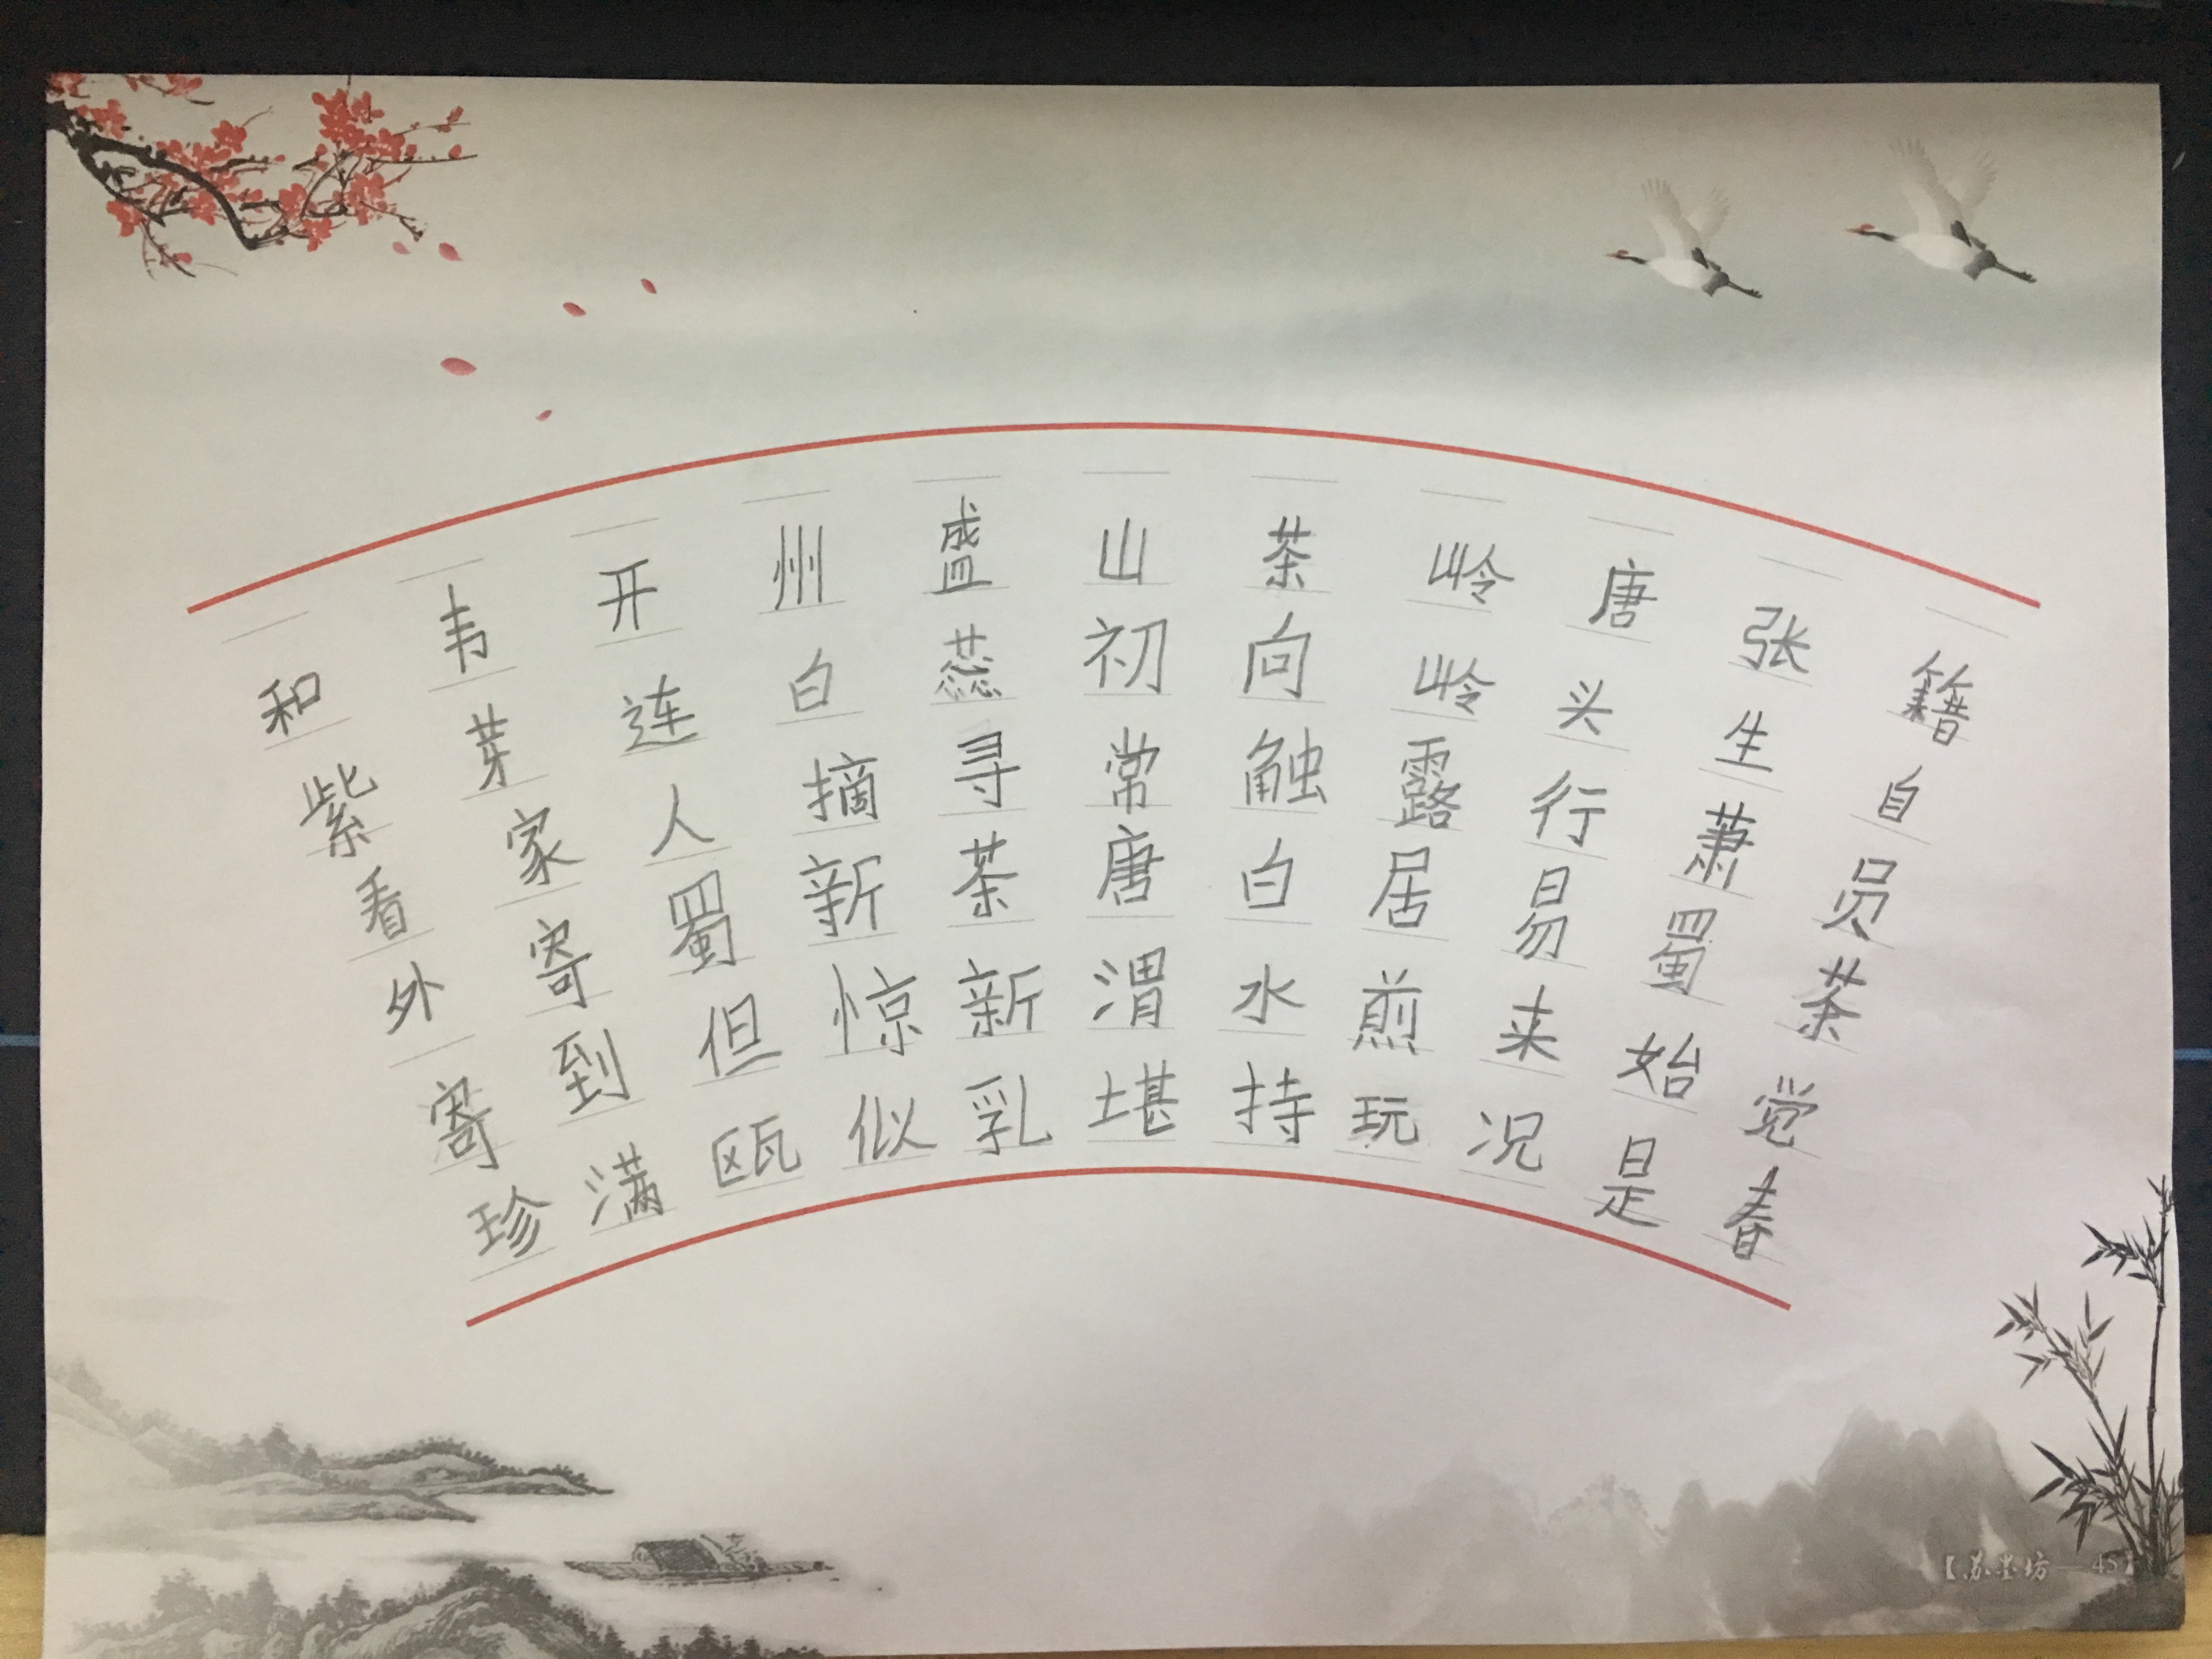 和韦开州盛山茶岭唐张籍
紫芽连白蕊初向岭头生自
看家人摘寻常触露行萧员
外寄蜀新茶唐白居易蜀茶
寄到但惊新渭水煎来始觉
珍满瓯似乳堪持玩况是春
【苏墨坊—45】